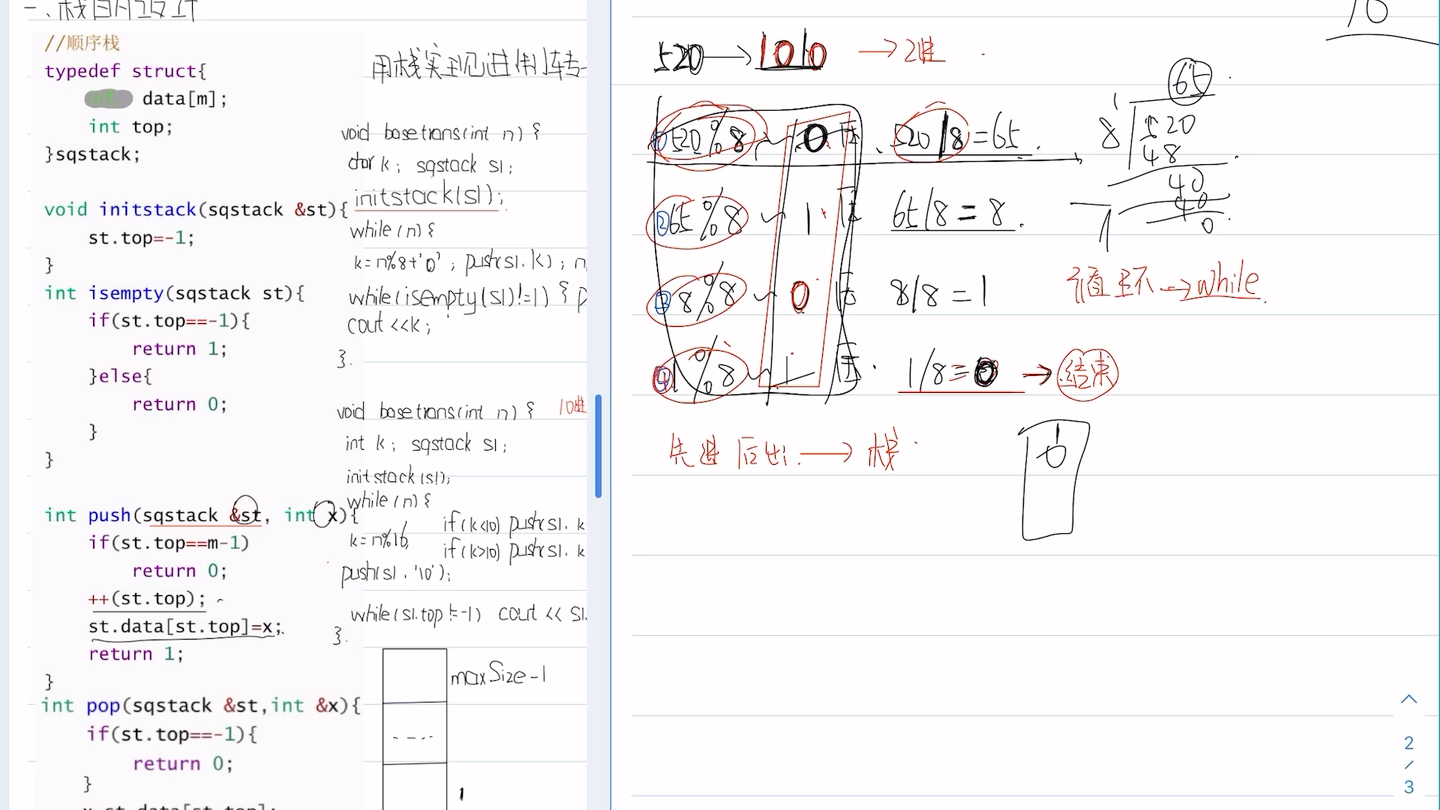 //顺序栈
typedef struct{
data[m];
int top;
}sqstack;
void initstack(sqstack &st){
st.top=-1;
}
int isempty(sqstack st){
if(st.top==-1){
return 1;
}else{
return 0;
}
}
int push(sqstack &st, int x){
if(st.top==m-1)
return 0;
++(st.top);
st.data[st.top]=x;
return 1;
}
int pop(sqstack &st,int &x){
if(st.top==-1){
return 0;
}
x=st.data[st.top];
用栈实现进制转
void basetrans(int n) {
char k; sqstack s1;
initstack(s1);
while(n){
k=n%8+'0'; push(s1.k); n
while(isempty(s1)!=1) { p
cout <<k;
}.
void basetrans(int n) { 10进
int k; sqstack s1;
initstack(s1);
while(n){
k=n%16, if(k<10) push(s1. k
if(k>10) push(s1. k
push(s1.'10');
while(s1.top!=-1) cout << s1.
}.
maxSize-1
1
10
520→1010 →2进
①520%8 ~ 0 压、520/8=65.
②65%8 ~ 1 压 65/8=8.
③8%8 ~ 0 压 8/8=1
④1%8 ~ 1 压. 1/8=0 → 结束
65
8 520
48
40
40
0
循环→while
先进后出→栈
1
0
2
/
3